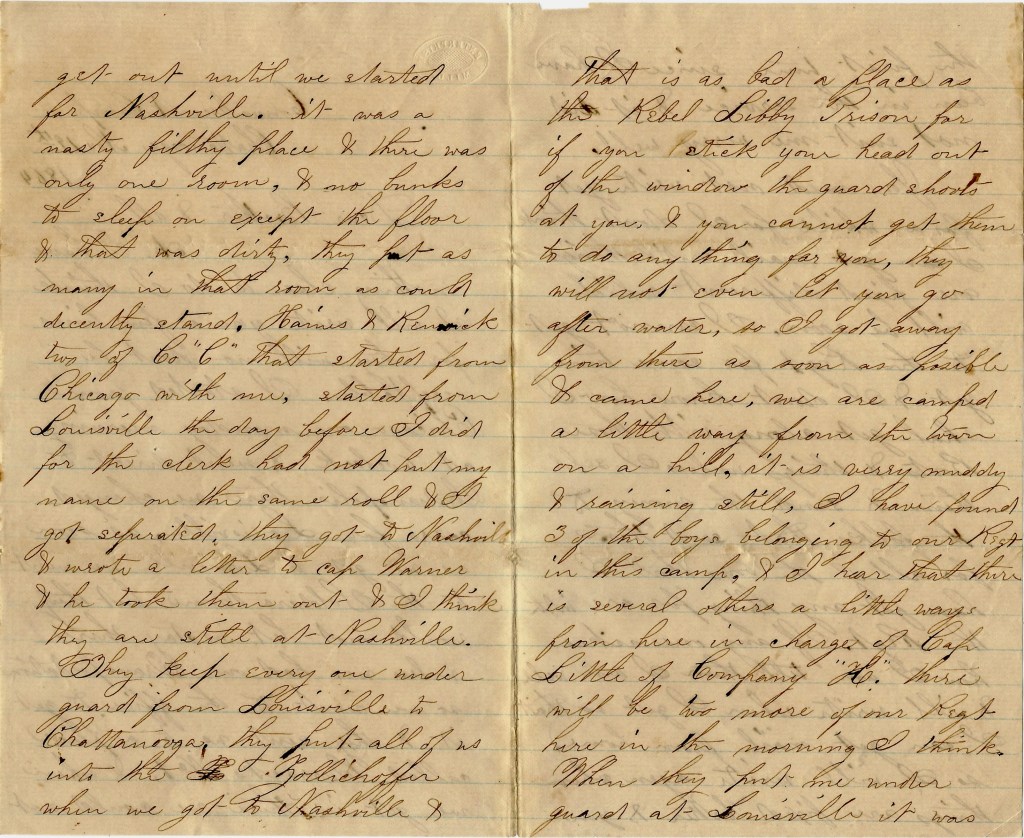 get out until we started
for Nashville. it was a
nasty filthy place & thire was
only one room, & no bunks
to sleep on except the floor
& that was dirty, they put as
many in that room as could
decently stand. Haines & Renwick
two of Co "C" that started from
Chicago with me, started from
Louisville the day before I did
for the clerk had not put my
name on the same roll & I
got seperated. they got to Nashvill
& wrote a letter to cap Warner
& he took them out & I think
they are still at Nashville.
They keep every one under
guard from Louisville to
Chattanooga, they put all of us
into the Zollichoffer
when we got to Nashville &
that is as bad a place as
the Rebel Libby Prison for
if you stick your head out
of the window the guard shoots
at you. & you cannot get them
to do any thing for you, they
will not even let you go
after water, so I got away
from there as soon as posible
& came here, we are camped
a little way from the town
on a hill, it is verry muddy
& raining still, I have found
3 of the boys belonging to our Regt
in this camp, & I hear that there
is several others a little ways
from here in charge of Cap
Little of Company "H." there
will be two more of our Regt
here in the morning I think.
When they put me under
guard at Louisville it was